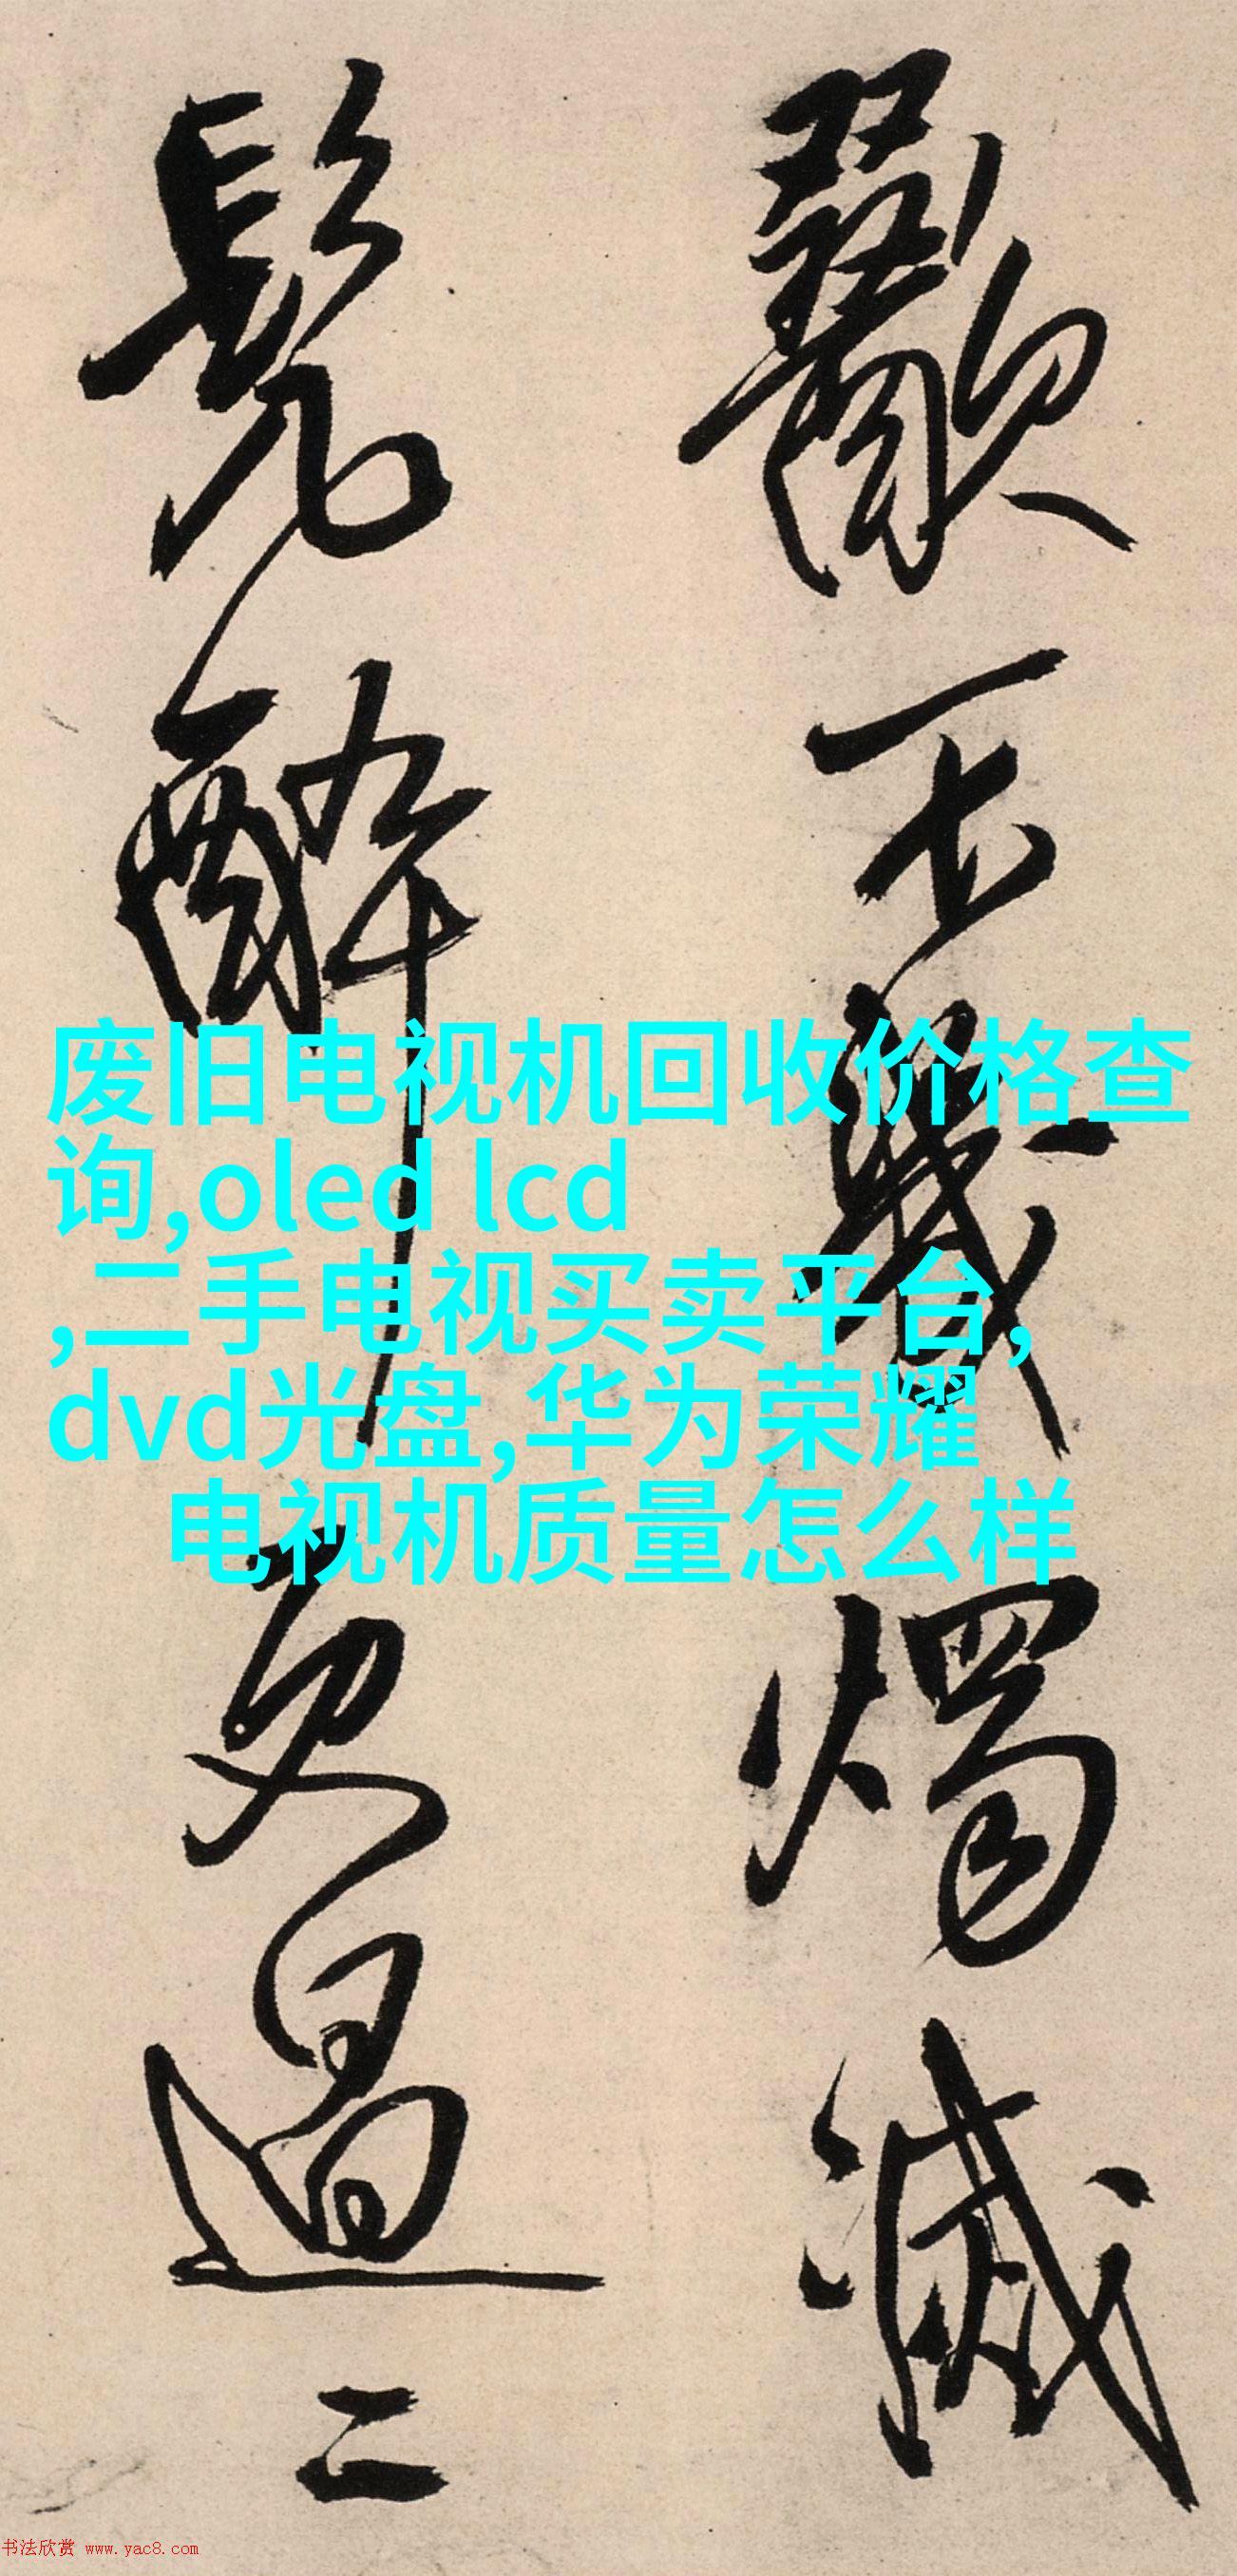 歠不幾燭滅
鬓醉更過二
废旧电视机回收价格查
询,oled lcd
,二手电视买卖平台,
dvd光盘,华为荣耀
电视机质量怎么样
书法欣赏 www.yac8.com